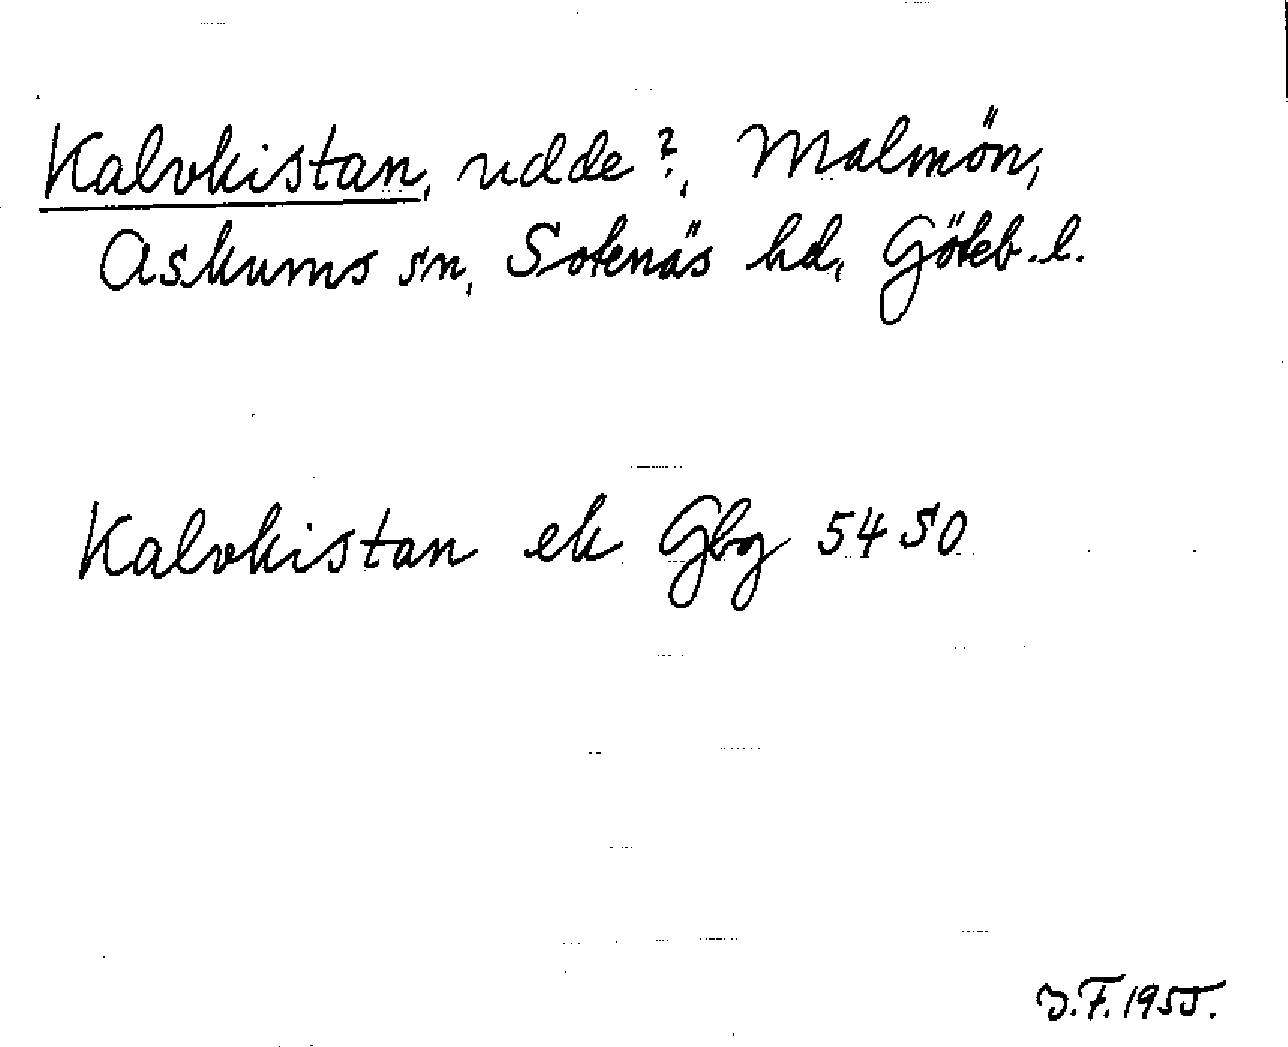 Kalvkistan, udde?, Malmön,
Askums sn, Sotenäs hd, Göteb. l.
Kalvkistan ek Gbg 5450
J.F. 1955.